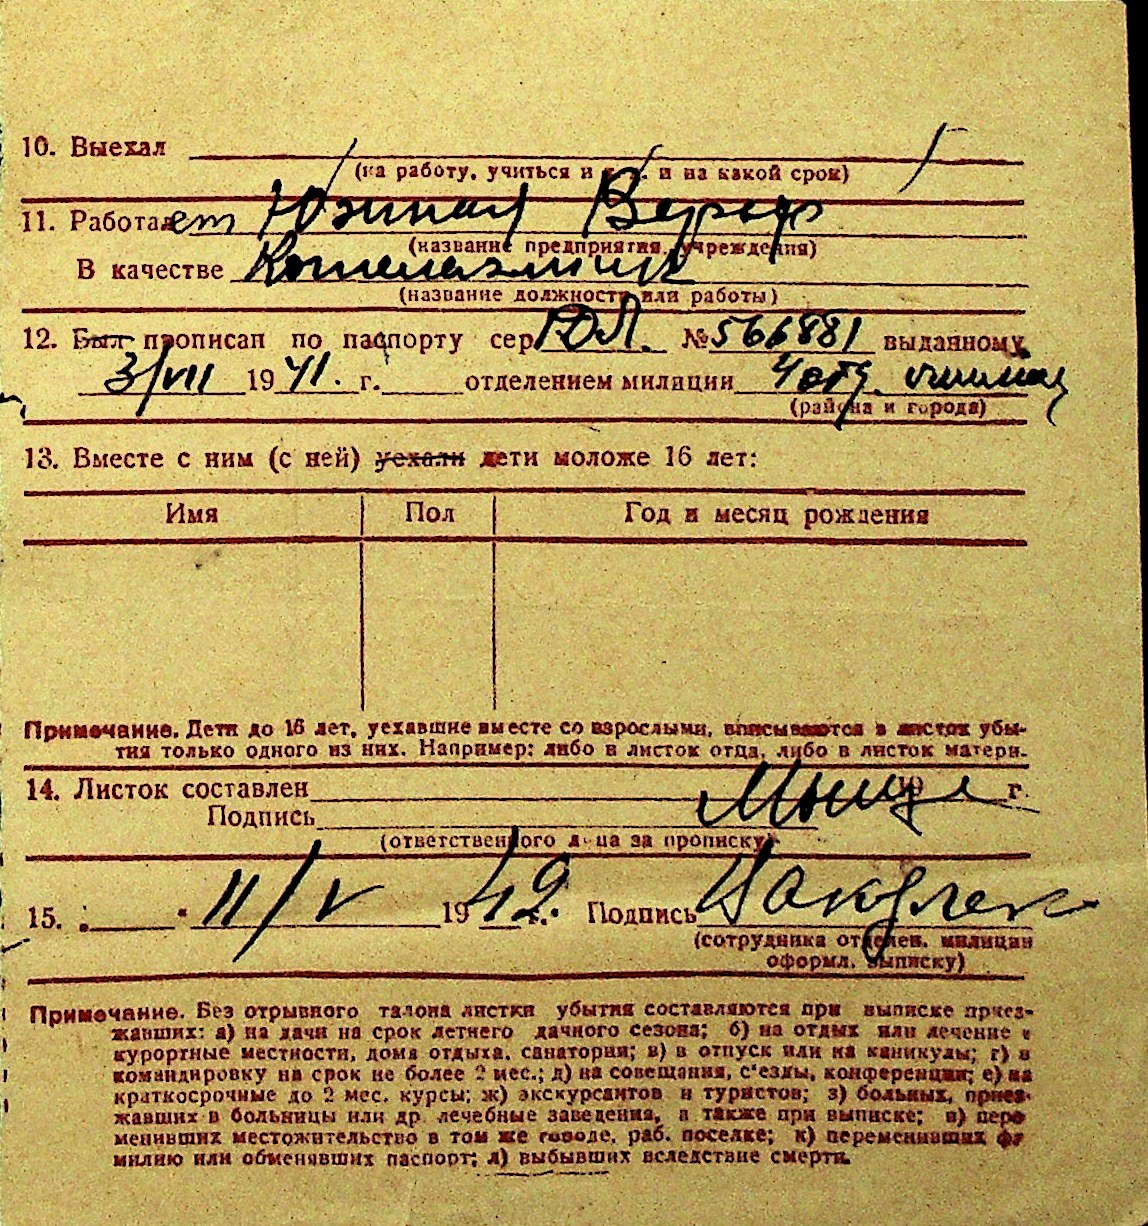 10. Выехал
(на работу, учиться и т. п. и на какой срок)
11. Работает Южная Верфь
(название предприятия, учреждения)
В качестве Котельщик
(название должности или работы)
12. Был прописан по паспорту сер ЮЛ. № 566881 выданному
3/VII 1941. г. отделением милиции 4 отд. милиц
(района и города)
13. Вместе с ним (с ней) уехали дети моложе 16 лет:
Имя Пол Год и месяц рождения
Примечание. Дети до 16 лет, уехавшие вместе со взрослыми, вписываются в листок убы-
тия только одного из них. Например: либо в листок отца, либо в листок матери.
14. Листок составлен 19 г.
Подпись
(ответственного лица за прописку)
15. " " 11/V 1942 г. Подпись
(сотрудника отделен. милиции
оформл. выписку)
Примечание. Без отрывного талона листки убытия составляются при выписке приез-
жавших: а) на дачи на срок летнего дачного сезона; б) на отдых или лечение в
курортные местности, дома отдыха, санатории; в) в отпуск или на каникулы; г) в
командировку на срок не более 2 мес.; д) на совещания, с'езды, конференции; е) на
краткосрочные до 2 мес. курсы; ж) экскурсантов и туристов; з) больных, приез-
жавших в больницы или др лечебные заведения, а также при выписке; и) пере
менивших местожительство в том же городе, раб. поселке; к) переменивших фа
милию или обменявших паспорт; л) выбывших вследствие смерти.